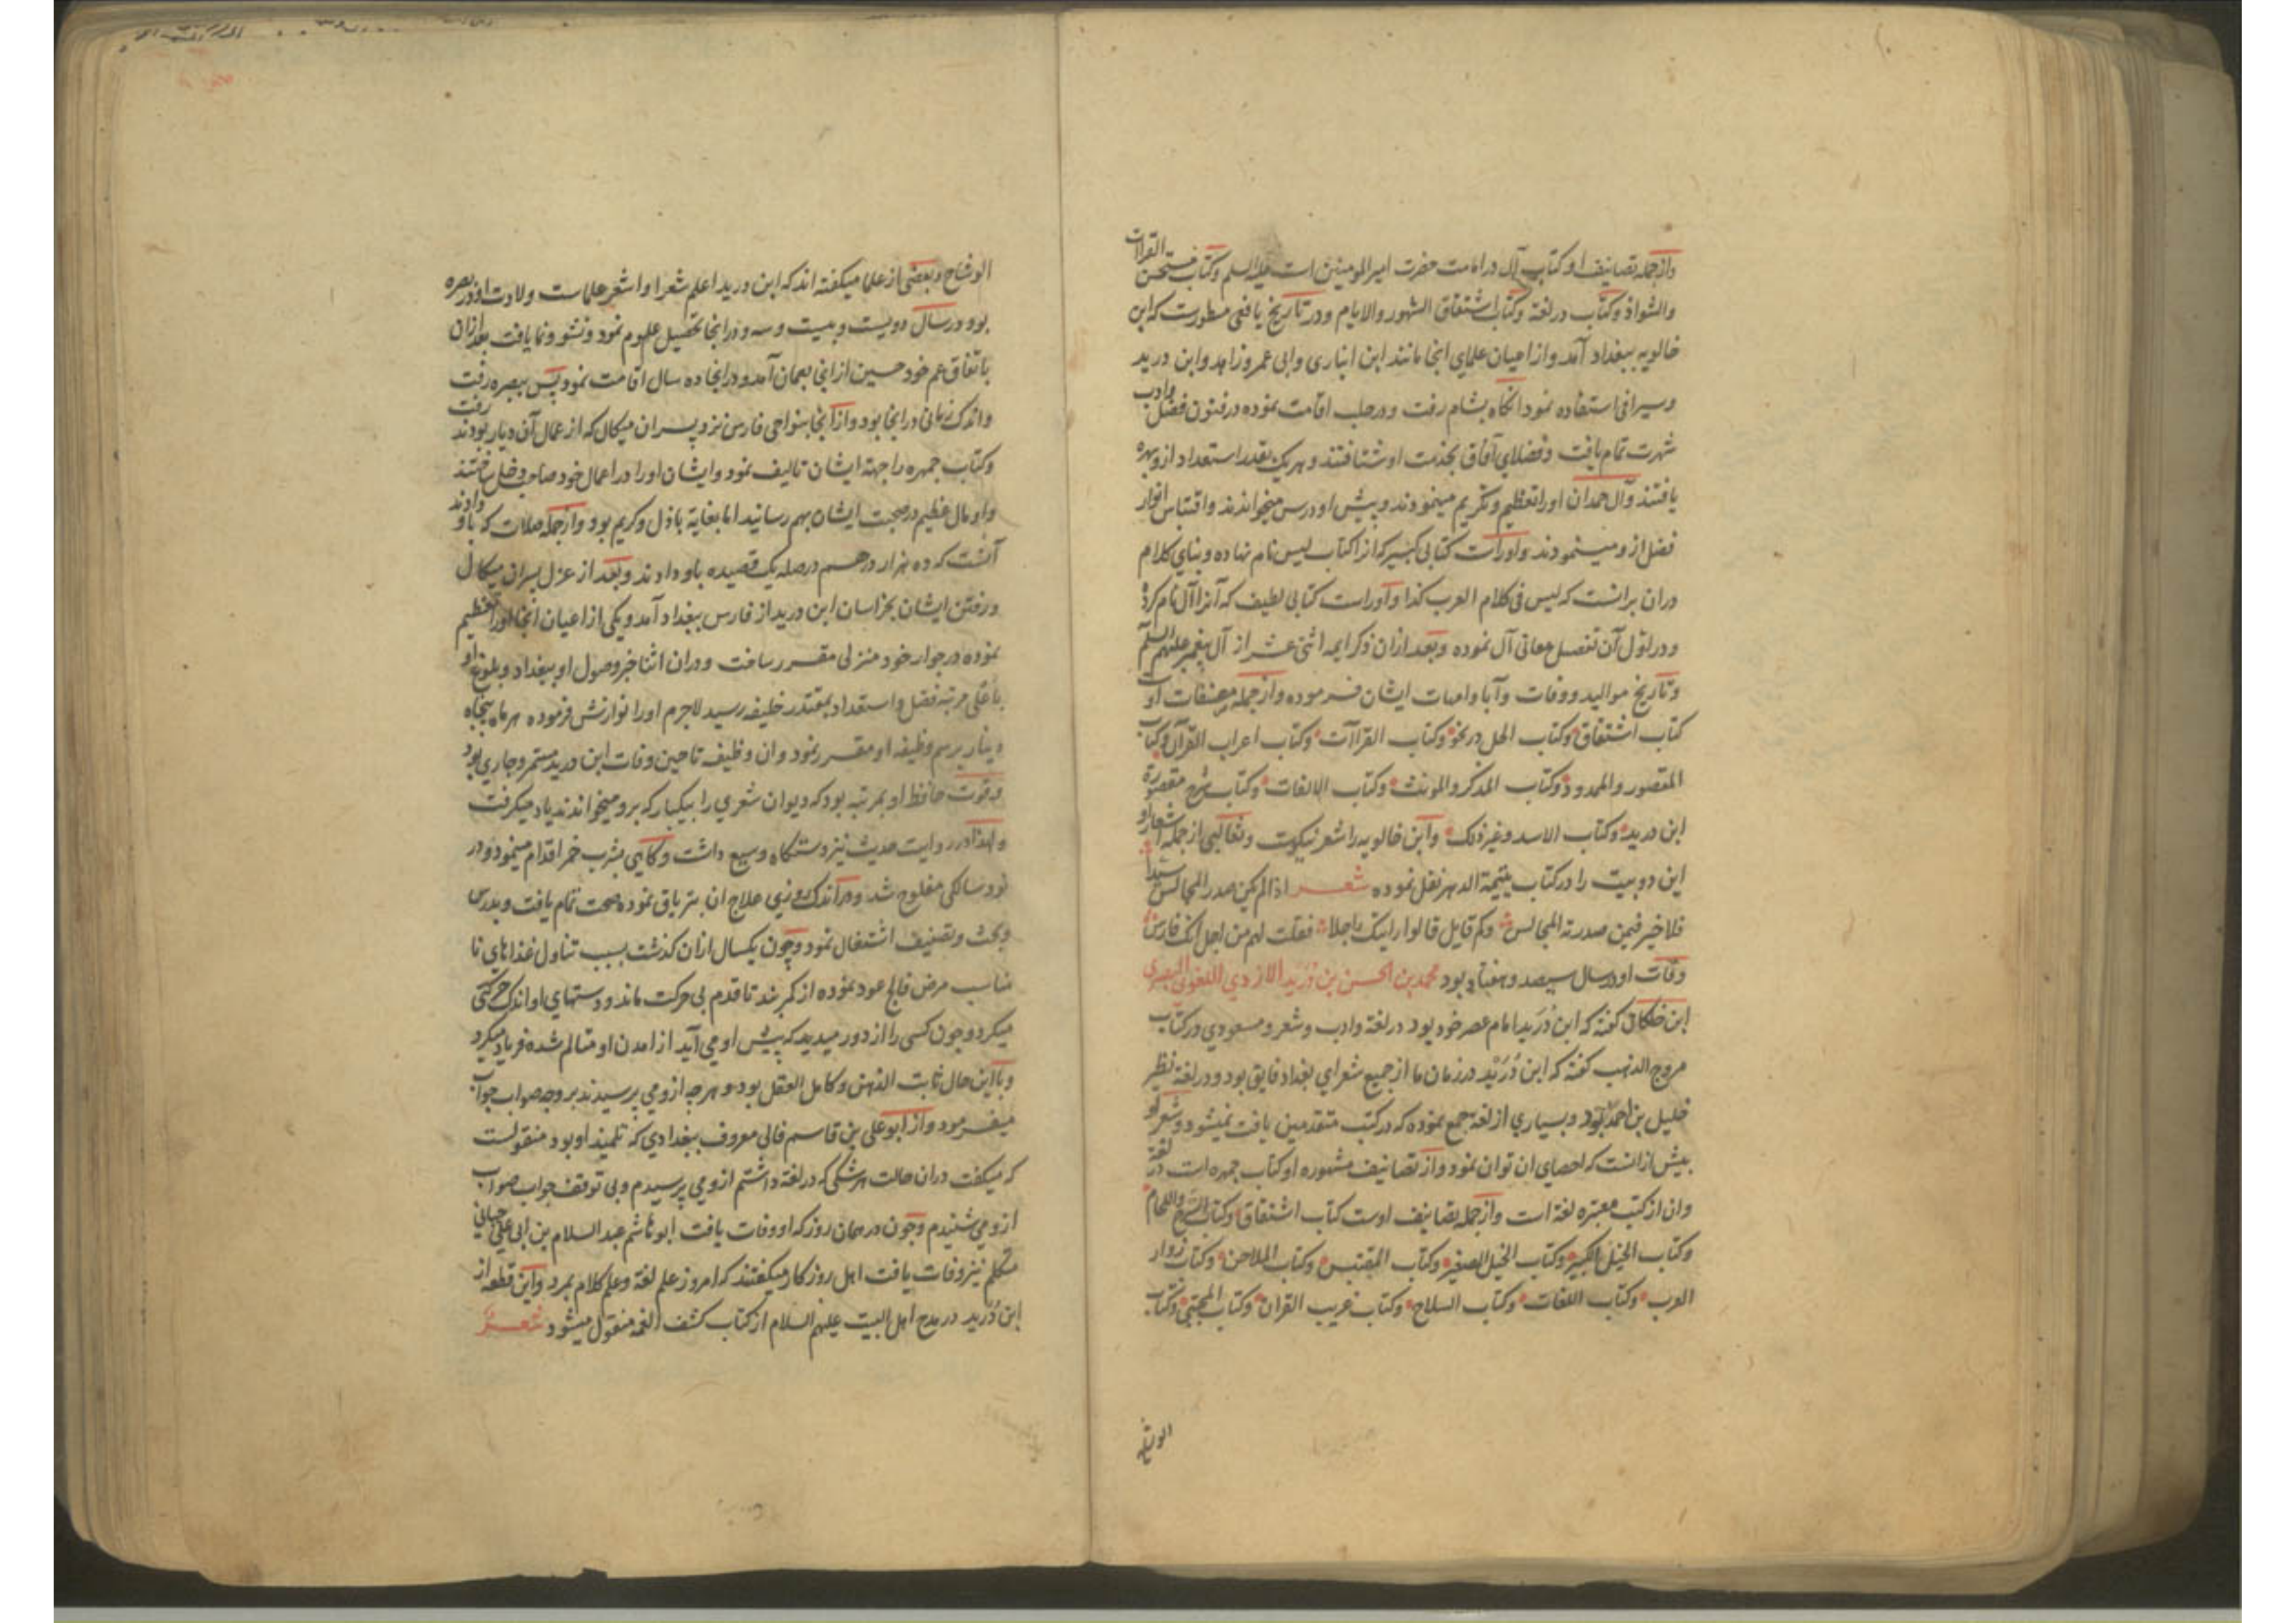 وازجمله تصانیف او کتاب آل در امامت حضرت امیر المومنین است علیه السلم وکتاب مستحسن القراات
والشواذ وکتاب در لغة وکتاب اشتقاق الشهور والایام ودر تاریخ یافعی مسطورست که ابن
خالویه ببغداد آمد واز اعیان علمای انجا مانند ابن انباری وابی عمر وزاهد وابن درید
وسیرافی استفاده نمود انکاه بشام رفت ودر حلب اقامت نموده در فنون فضل وادب
شهرت تمام یافت وفضلای آفاق بخدمت او شتافتند وهر یک بقدر استعداد ازو بهره
یافتند وآل حمدان اورا تعظیم وتکریم مینمودند وپیش او درس میخواندند واقتباس انوار
فضل ازو مینمودند واوراست کتابی کبیر که انرا کتاب لیس نام نهاده وبنای کلام
دران برانست که لیس فی کلام العرب کذا واوراست کتابی لطیف که آنرا آل نام کرده
ودر اول آن تفصیل معانی آل نموده وبعد ازان ذکر ایمه اثنی عشر از آل پیغمبر علیهم السلم
وتاریخ موالید ووفات وآبا وامهات ایشان فرموده وازجمله مصنفات اوست
کتاب اشتقاق وکتاب الجمل در نحو وکتاب القراآت وکتاب اعراب القرآن وکتاب
المقصور والممدود وکتاب المذکر والمونث وکتاب الالفات وکتاب شرح مقصورة
ابن درید وکتاب الاسد وغیر ذلک وابن خالویه را شعر نیکوست وثعالبی ازجمله اشعار او
این دو بیت را در کتاب یتیمة الدهر نقل نموده شعر اذا لم یکن صدر المجالس سیدا
فلا خیر فیمن صدرته المجالس وکم قایل قالوا رایتک راجلا فقلت لهم من اجل انک فارس
وفات او در سال سیصد وهفتاد بود محمد بن الحسن بن دُرَید الازدی اللغوی البصری
ابن خلکان کفته که ابن دُرَید امام عصر خود بود در لغة وادب وشعر ومسعودی در کتاب
مروج الذهب کفته که ابن دُرَیْد در زمان ما از جمیع شعرای بغداد فایق بود ودر لغة نظیر
خلیل بن احمد بود وبسیاری از لغة جمع نموده که در کتب متقدمین یافت نمیشود وشعر او
بیش ازانست که احصای ان توان نمود واز تصانیف مشهوره او کتاب جمهره است در لغة
وان از کتب معتبره لغة است وازجمله تصانیف اوست کتاب اشتقاق وکتاب السرج واللجام
وکتاب الخیل الکبیر وکتاب الخیل الصغیر وکتاب المقتبس وکتاب الملاحن وکتاب زوار
العرب وکتاب اللغات وکتاب السلاح وکتاب غریب القران وکتاب المجتبی وکتاب
الوشاح
الوشاح وبعضی از علما میکفته اند که ابن درید اعلم شعرا واشعر علماست ولادت او در بصره
بود در سال دویست وبیست وسه ودر انجا تحصیل علوم نمود ونشو ونما یافت بعد ازان
باتفاق عم خود حسین از انجا بعمان آمد ودر انجا ده سال اقامت نمود پس ببصره رفت
واندک زمانی در انجا بود واز آنجا بنواحی فارس نزد پسران میکال که از عمال آن دیار بودند رفت
وکتاب جمهره را جهة ایشان تالیف نمود وایشان اورا در اعمال خود صاحب دخل ساختند
واو مال عظیم در صحبت ایشان بهم رسانید اما بغایة باذل وکریم بود وازجمله صلات که باو دادند
آنست که ده هزار درهم در صله یک قصیده باو دادند وبعد از عزل پسران میکال
ورفتن ایشان بخراسان ابن درید از فارس ببغداد آمد ویکی از اعیان انجا اورا تعظیم
نموده در جوار خود منزلی مقرر ساخت ودران اثنا خبر وصول او ببغداد وبلوغ او
باعلی مرتبه فضل واستعداد بمقتدر خلیفه رسید لاجرم اورا نوازش فرموده هر ماه پنجاه
دینار برسم وظیفه او مقرر نمود وان وظیفه تا حین وفات ابن درید مستمر وجاری بود
وقوت حافظه او بمرتبه بود که دیوان شعری را بیکبار که برو میخواندند یاد میکرفت
ولهذا در روایت حدیث نیز دستکاه وسیع داشت وکاهی بشرب خمر اقدام مینمود ودر
نود سالکی مفلوج شد ودر اندک روزی علاج ان بتریاق نموده صحت تمام یافت وبدرس
وبحث وتصنیف اشتغال نمود وچون یکسال ازان کذشت بسبب تناول غذاهای نا
مناسب مرض فالج عود نموده از کمر شد تا قدم بی حرکت ماند ودستهای او اندک حرکتی
میکرد وچون کسی را از دور میدید که پیش او می آید از امدن او متالم شده فریاد میکرد
وبا این حال ثابت الذهن وکامل العقل بود وهرچه ازو می پرسیدند بر وجه صواب جواب
میفرمود واز ابو علی بن قاسم قالی معروف ببغدادی که تلمیذ او بود منقولست
که میکفت دران حالت هر شکی که در لغة داشتم ازو می پرسیدم وبی توقف جواب صواب
ازو می شنیدم وچون در همان روز که او وفات یافت ابو هاشم عبد السلام بن ابی علی جبائی
متکلم نیز وفات یافت اهل روزکار میکفتند که امروز علم لغة وعلم کلام بمرد واین قطعه از
ابن دُرَید در مدح اهل البیت علیهم السلام از کتاب کشف الغمه منقول میشود شعر